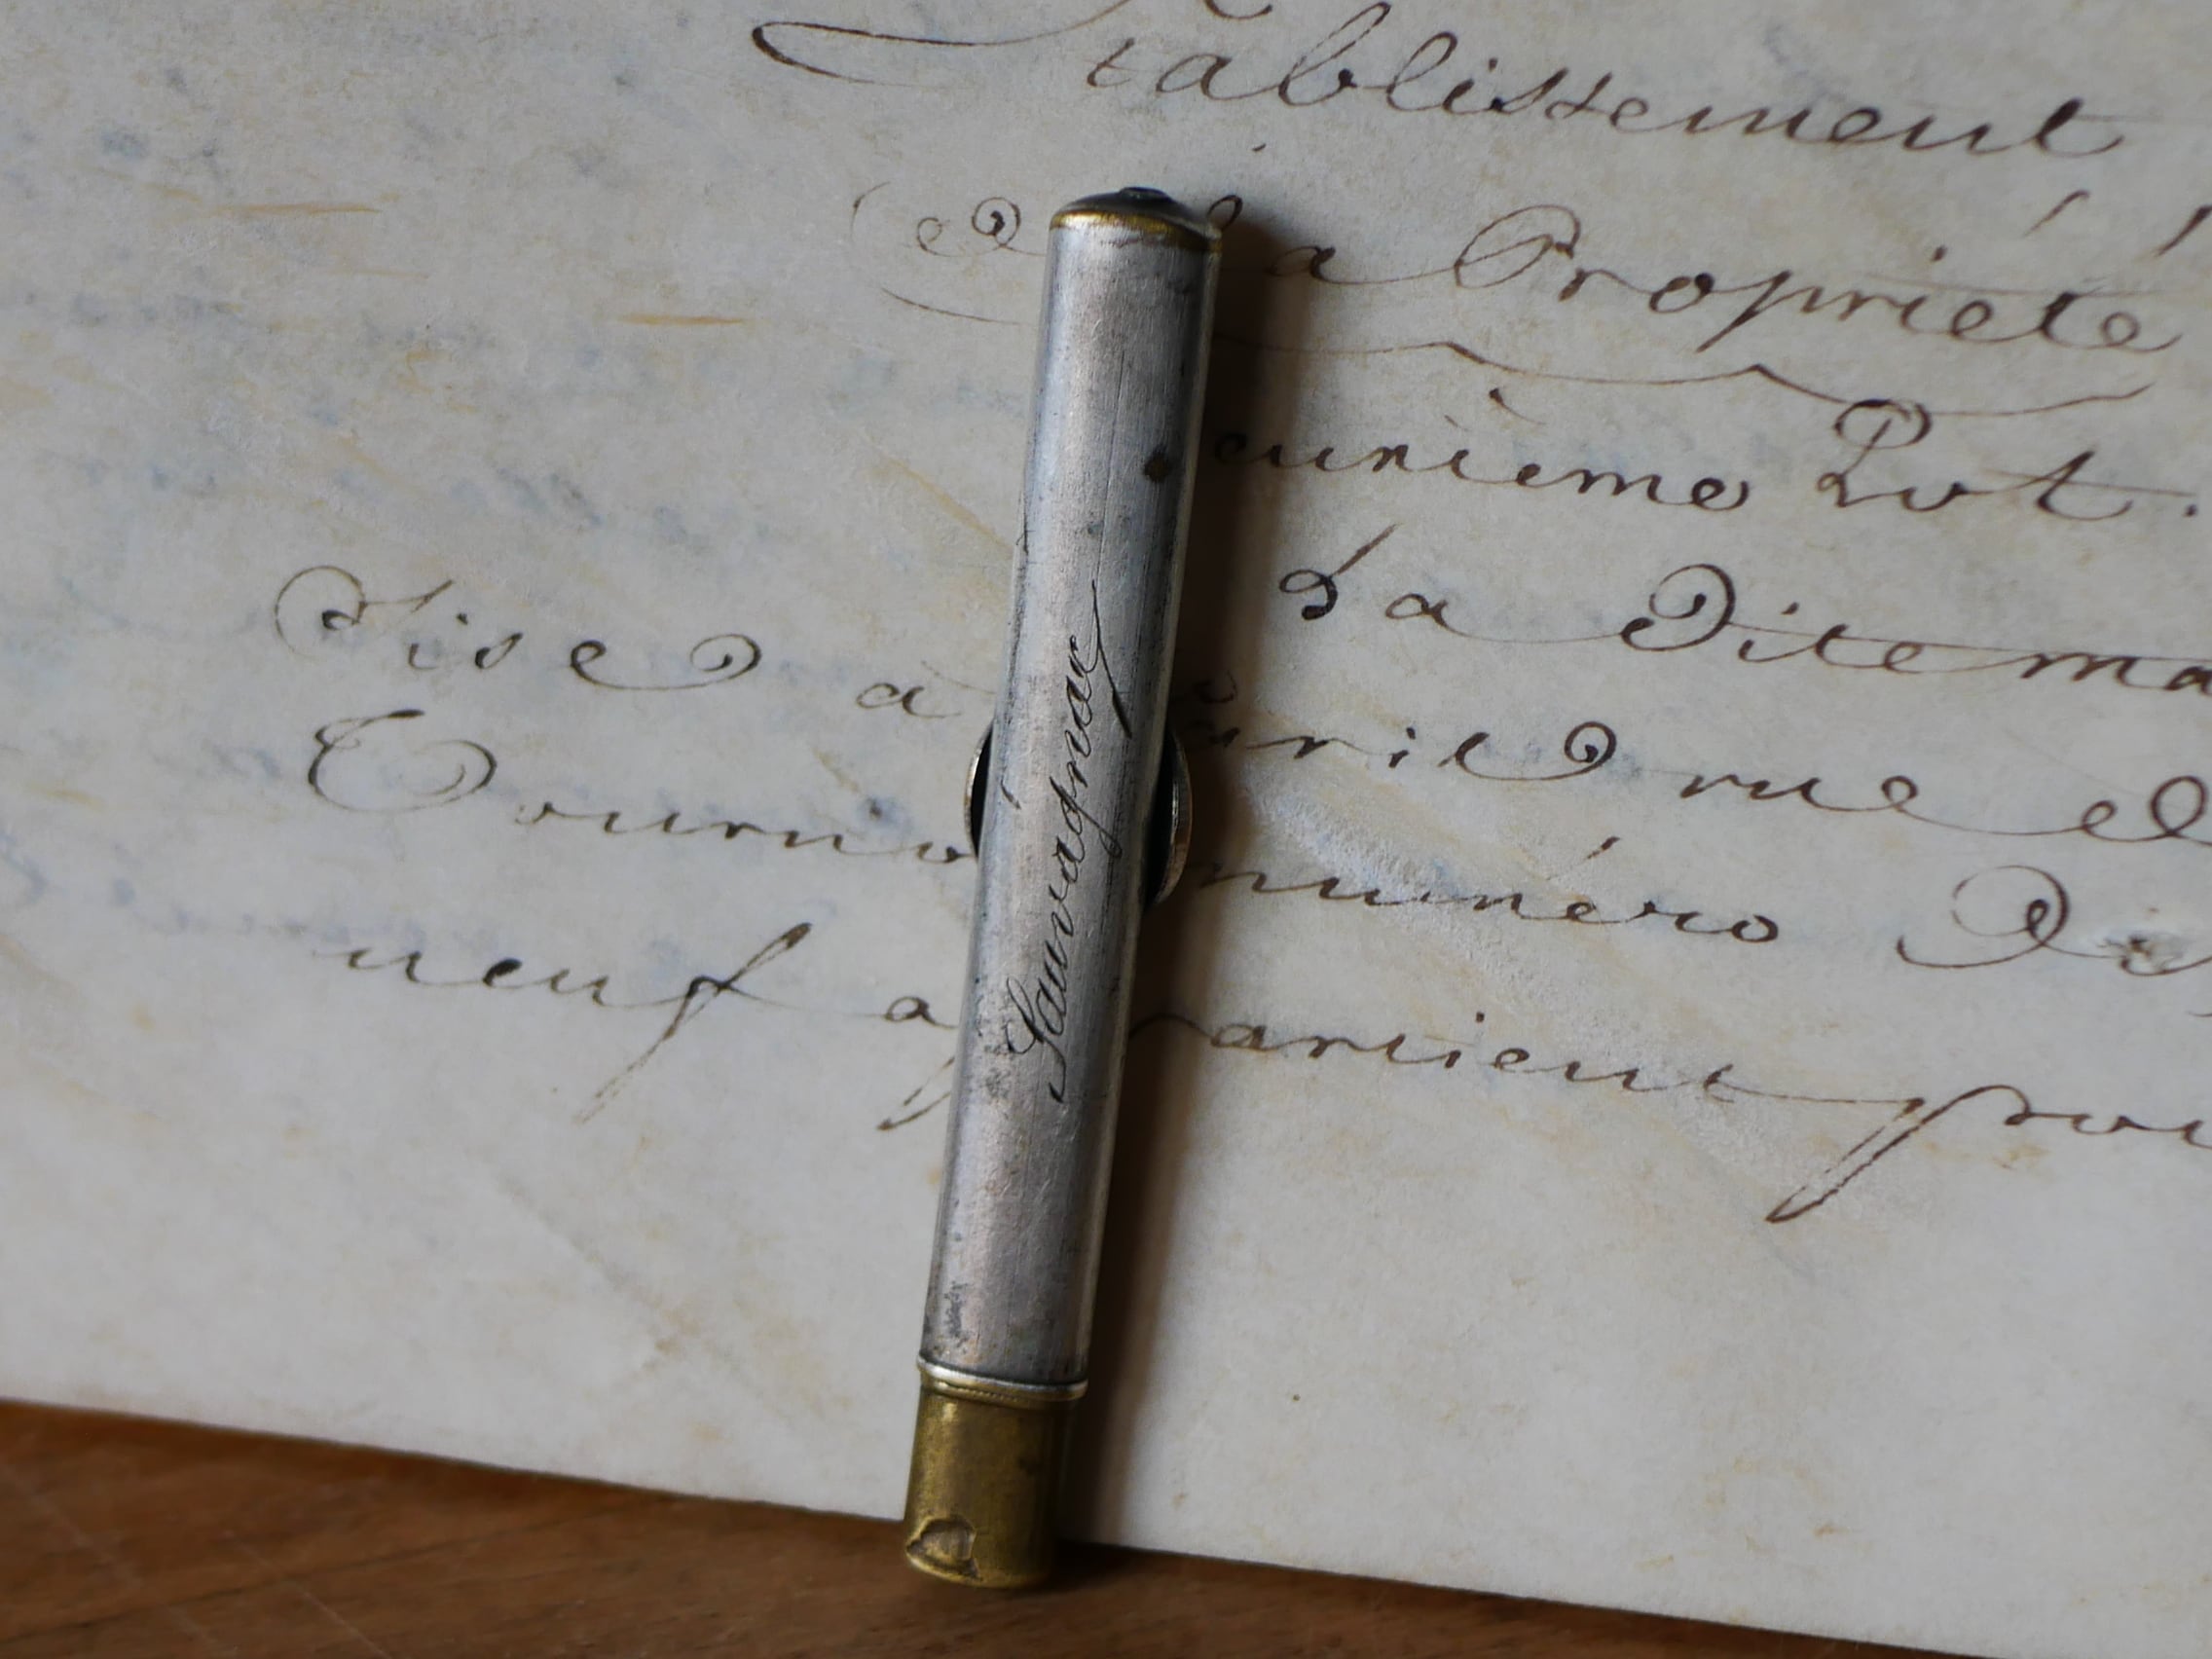 Etablissement
de la Propriété
euxieme Lot.
La Dite ma
Sise a Paris rue
Tourno numéro Dix
neuf appartient pou
Sauvagnac